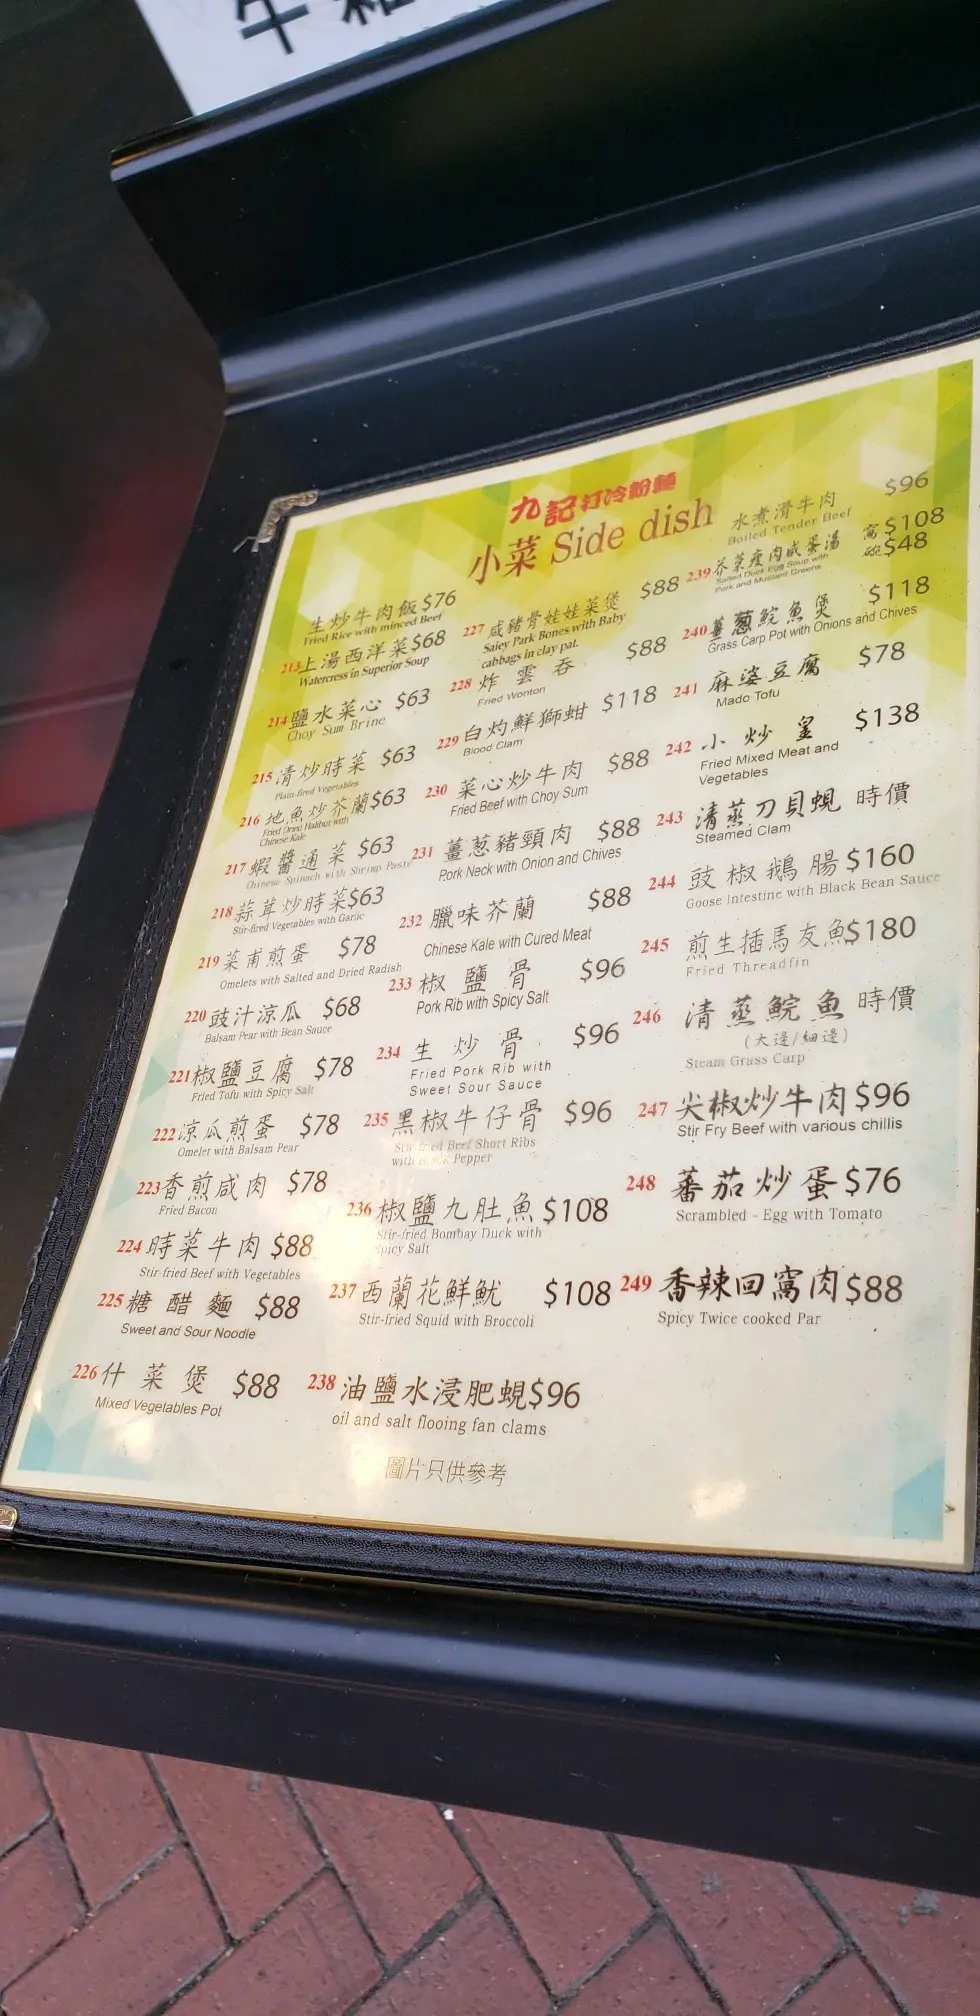 牛雜
九記打冷粉麵
小菜 Side dish
生炒牛肉飯 $76
Fried Rice with minced Beef
213 上湯西洋菜 $68
Watercress in Superior Soup
214 鹽水菜心 $63
Choy Sum Brine
215 清炒時菜 $63
Plain-fired Vegetables
216 地魚炒芥蘭 $63
Fried Dried Halibut with
Chinese Kale
217 蝦醬通菜 $63
Chinese Spinach with Shrimp Paste
218 蒜茸炒時菜 $63
Stir-fired Vegetables with Garlic
219 菜甫煎蛋 $78
Omelets with Salted and Dried Radish
220 豉汁涼瓜 $68
Balsam Pear with Bean Sauce
221 椒鹽豆腐 $78
Fried Tofu with Spicy Salt
222 涼瓜煎蛋 $78
Omelet with Balsam Pear
223 香煎咸肉 $78
Fried Bacon
224 時菜牛肉 $88
Stir-fried Beef with Vegetables
225 糖醋麵 $88
Sweet and Sour Noodle
226 什菜煲 $88
Mixed Vegetables Pot
227 咸豬骨娃娃菜煲 $88
Saley Park Bones with Baby
cabbags in clay pat.
228 炸雲吞 $88
Fried Wonton
229 白灼鮮獅蚶 $118
Blood Clam
230 菜心炒牛肉 $88
Fried Beef with Choy Sum
231 薑葱豬頸肉 $88
Pork Neck with Onion and Chives
232 臘味芥蘭 $88
Chinese Kale with Cured Meat
233 椒鹽骨 $96
Pork Rib with Spicy Salt
234 生炒骨 $96
Fried Pork Rib with
Sweet Sour Sauce
235 黑椒牛仔骨 $96
Stir-fried Beef Short Ribs
with Black Pepper
236 椒鹽九肚魚 $108
Stir-fried Bombay Duck with
Spicy Salt
237 西蘭花鮮魷 $108
Stir-fried Squid with Broccoli
238 油鹽水浸肥蜆 $96
oil and salt flooing fan clams
水煮滑牛肉 $96
Boiled Tender Beef
239 芥菜瘦肉咸蛋湯 窩 $108
碗 $48
Salted Duck Egg Soup with
Pork and Mustard Greens
240 薑葱鯇魚煲 $118
Grass Carp Pot with Onions and Chives
241 麻婆豆腐 $78
Mado Tofu
242 小炒皇 $138
Fried Mixed Meat and
Vegetables
243 清蒸刀貝蜆 時價
Steamed Clam
244 豉椒鵝腸 $160
Goose Intestine with Black Bean Sauce
245 煎生插馬友魚 $180
Fried Threadfin
246 清蒸鯇魚 時價
(大邊/細邊)
Steam Grass Carp
247 尖椒炒牛肉 $96
Stir Fry Beef with various chillis
248 蕃茄炒蛋 $76
Scrambled - Egg with Tomato
249 香辣回窩肉 $88
Spicy Twice cooked Par
圖片只供參考